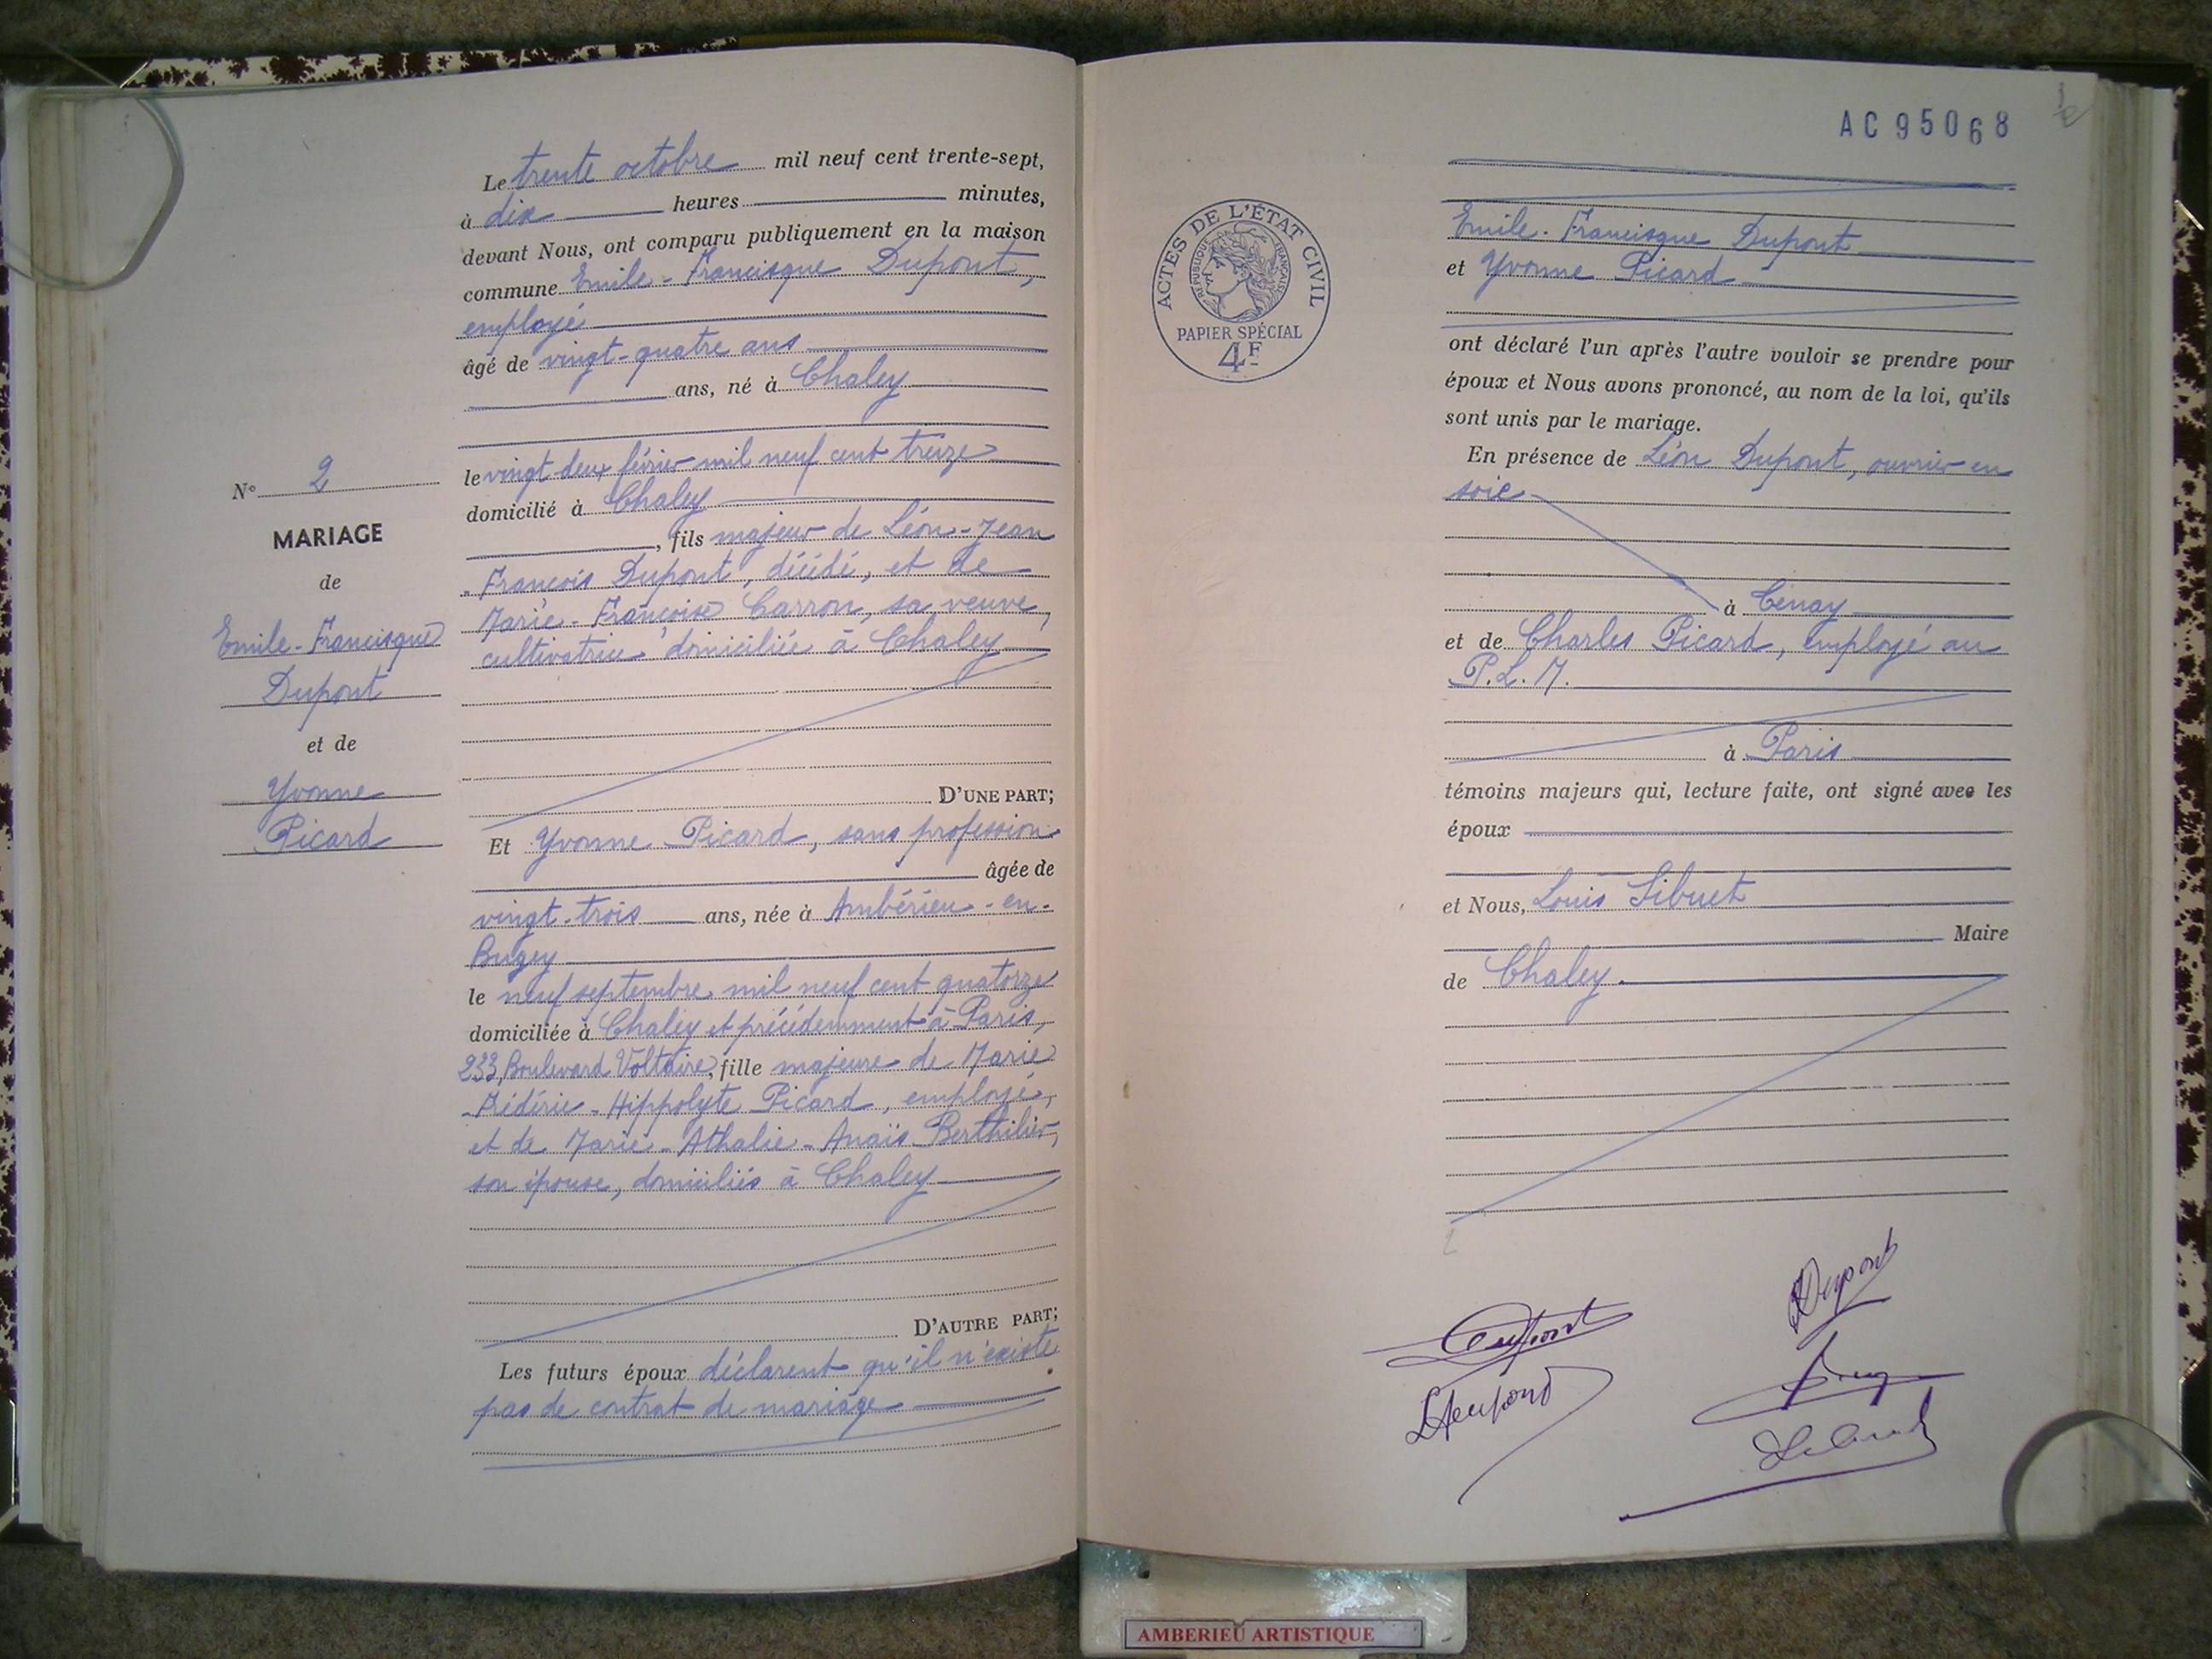 N° 2
MARIAGE
de
Emile-Francisque
Dupont
et de
Yvonne
Picard
Le trente octobre mil neuf cent trente-sept,
à dix heures minutes,
devant Nous, ont comparu publiquement en la maison
commune Emile-Francisque Dupont,
employé
âgé de vingt-quatre ans
ans, né à Chaley
le vingt deux février mil neuf cent treize
domicilié à Chaley
, fils majeur de Léon-Jean
-François Dupont, décédé, et de
Marie-Françoise Carron, sa veuve,
cultivatrice domiciliée à Chaley
D'UNE PART;
Et Yvonne Picard, sans profession
âgée de
vingt-trois ans, née à Ambérieu-en-
Bugey
le neuf septembre mil neuf cent quatorze
domiciliée à Chaley et précédemment à Paris,
233, Boulevard Voltaire, fille majeure de Marie
-Frédéric-Hippolyte Picard, employé,
et de Marie-Athalie-Anaïs Berthilier,
son épouse, domiciliés à Chaley
D'AUTRE PART;
Les futurs époux déclarent qu'il n'existe
pas de contrat de mariage
AC 95068
ACTES DE L'ÉTAT CIVIL
RÉPUBLIQUE FRANÇAISE
PAPIER SPÉCIAL
4F
Emile-Francisque Dupont
et Yvonne Picard
ont déclaré l'un après l'autre vouloir se prendre pour
époux et Nous avons prononcé, au nom de la loi, qu'ils
sont unis par le mariage.
En présence de Léon Dupont, ouvrier en
soie
à Tenay
et de Charles Picard, employé au
P.L.M.
à Paris
témoins majeurs qui, lecture faite, ont signé avec les
époux
et Nous, Louis Sibuet
Maire
de Chaley.
Dupont
Dupont
AMBERIEU ARTISTIQUE